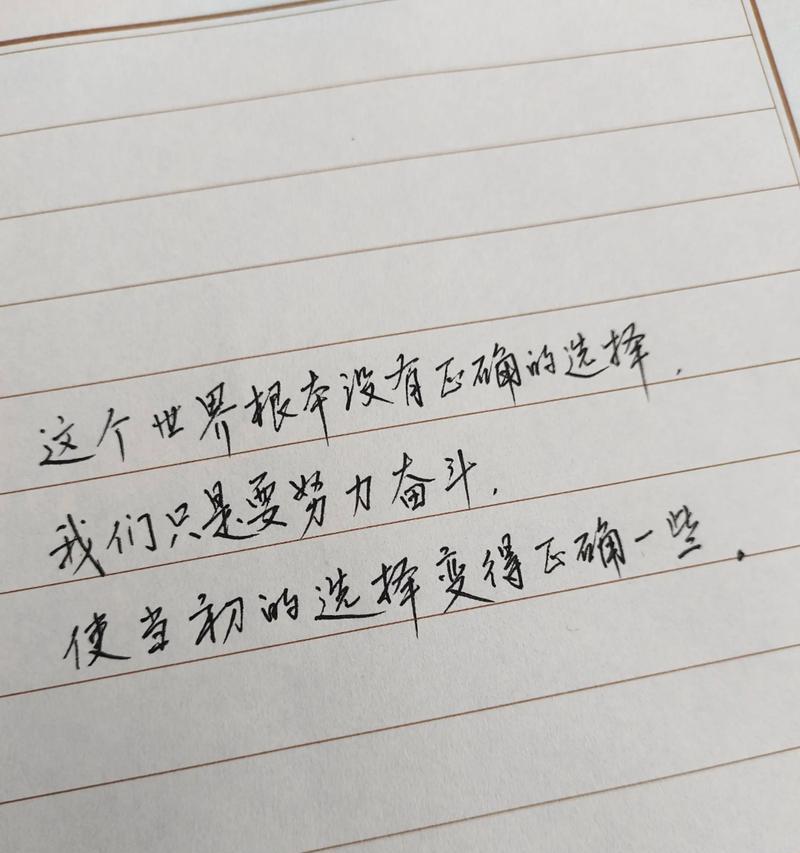 这个世界根本没有正确的选择，
我们只是要努力奋斗，
使当初的选择变得正确一些。